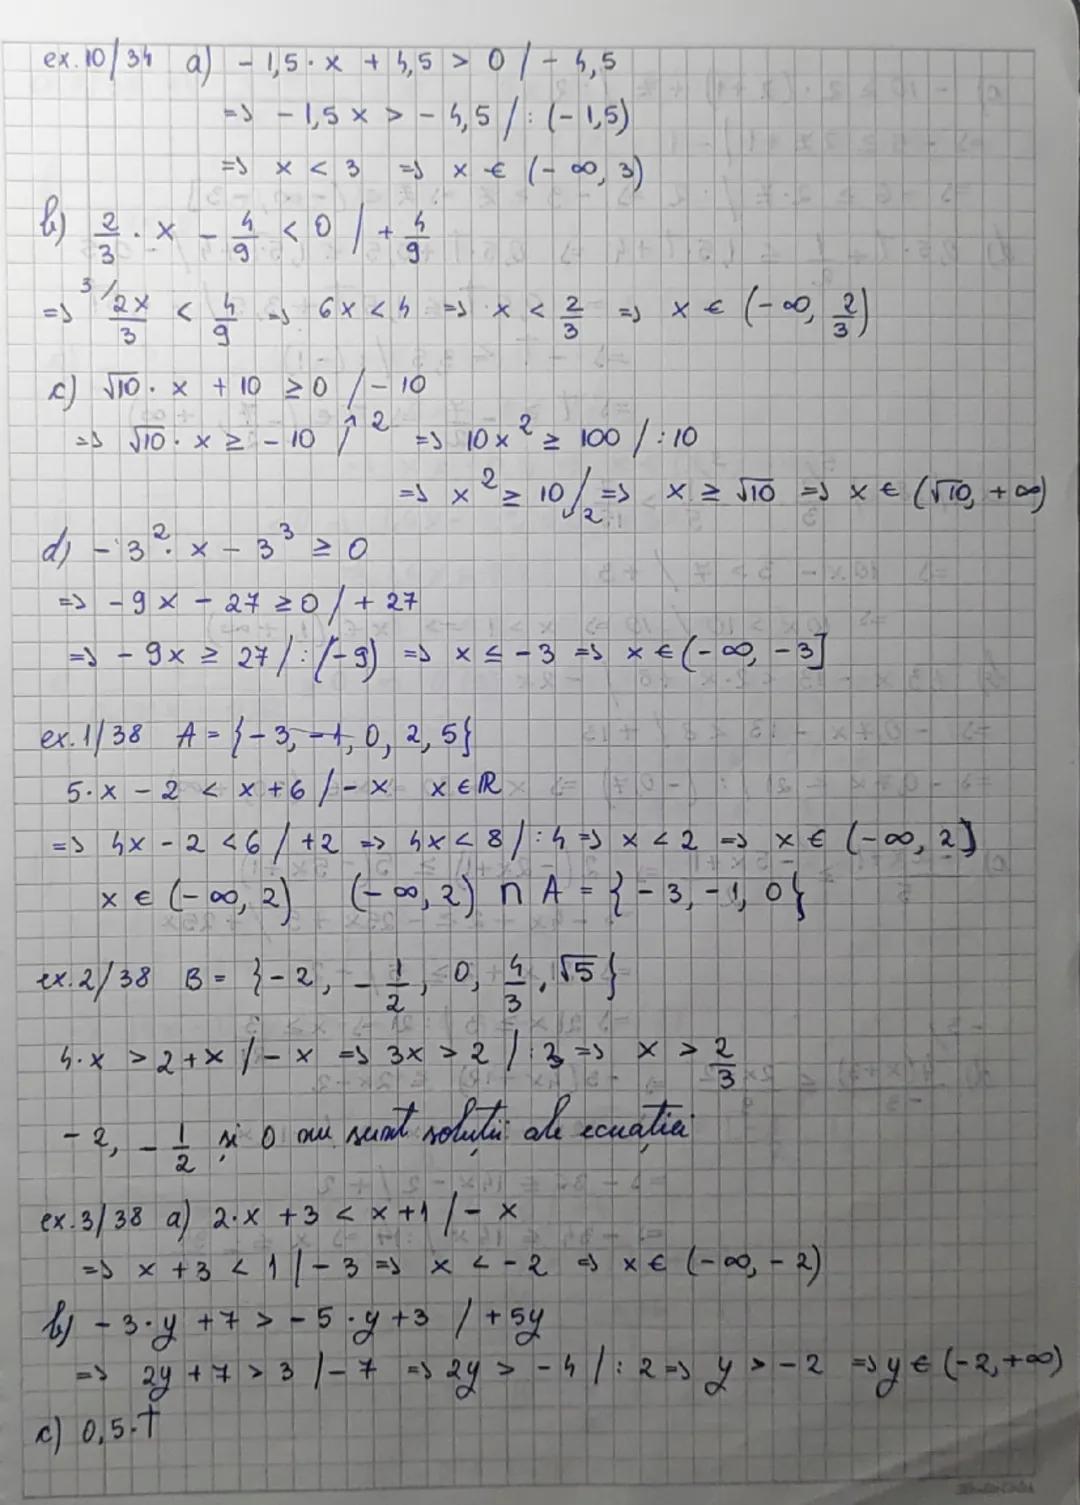 ex. 10/34 a) - 1,5 · x + 4,5 > 0 / - 4,5
=> - 1,5 x > - 4,5 / : (- 1,5)
=> x < 3 => x ∈ (- ∞, 3)
b) 2/3 · x - 4/9 < 0 / + 4/9
=> 3/ 2x/3 < 4/9 => 6x < 4 => x < 2/3 => x ∈ (-∞, 2/3)
c) √10 · x + 10 ≥ 0 / - 10
=> √10 · x ≥ - 10 /↑2 => 10x² ≥ 100 / : 10
=> x² ≥ 10 /√2 => x ≥ √10 => x ∈ (√10, + ∞)
d) - 3² · x - 3³ ≥ 0
=> - 9x - 27 ≥ 0 / + 27
=> - 9x ≥ 27 / : (-9) => x ≤ - 3 => x ∈ (- ∞, - 3]
ex. 1/38 A = {- 3, - 1, 0, 2, 5}
5 · x - 2 < x + 6 / - x x ∈ ℝ
=> 4x - 2 < 6 / + 2 => 4x < 8 / : 4 => x < 2 => x ∈ (- ∞, 2)
x ∈ (- ∞, 2) (- ∞, 2) ∩ A = {- 3, - 1, 0}
ex. 2/38 B = {- 2, - 1/2, 0, 4/3, √5}
4 · x > 2 + x / - x => 3x > 2 / : 3 => x > 2/3
- 2, - 1/2 și 0 nu sunt soluții ale ecuației
ex. 3/38 a) 2 · x + 3 < x + 1 / - x
=> x + 3 < 1 / - 3 => x < - 2 => x ∈ (- ∞, - 2)
b) - 3 · y + 7 > - 5 · y + 3 / + 5y
=> 2y + 7 > 3 / - 7 => 2y > - 4 / : 2 => y > - 2 => y ∈ (- 2, + ∞)
c) 0,5 · T